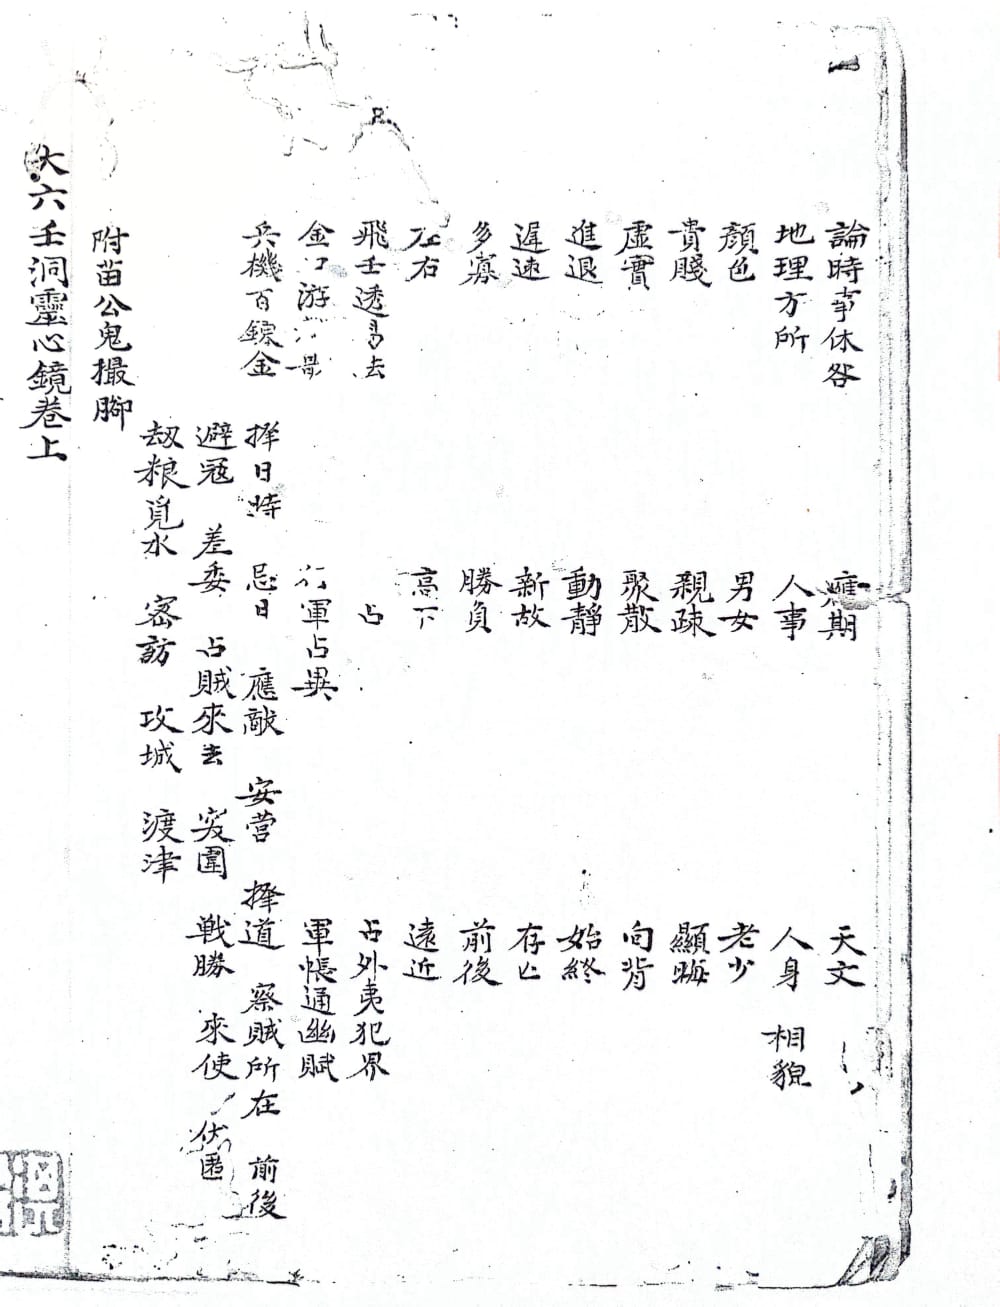 論時事休咎 應期 天文
地理方所 人事 人身 相貌
顏色 男女 老少
貴賤 親疎 顯晦
虛實 聚散 向背
進退 動靜 始終
遲速 新故 存亾
多寡 勝負 前後
左右 高下 遠近
飛壬透易法 占 占外夷犯界
金口游 行軍占異 軍帳通幽賦
兵機百錄金 擇日時 忌日 應敵 安營 擇道 察賊所在 前後
避冦 差委 占賊來去 突圍 戦勝 來使 伏匿
刼粮覓水 宻訪 攻城 渡津
附苗公鬼撮脚
大六壬洞靈心鏡卷上